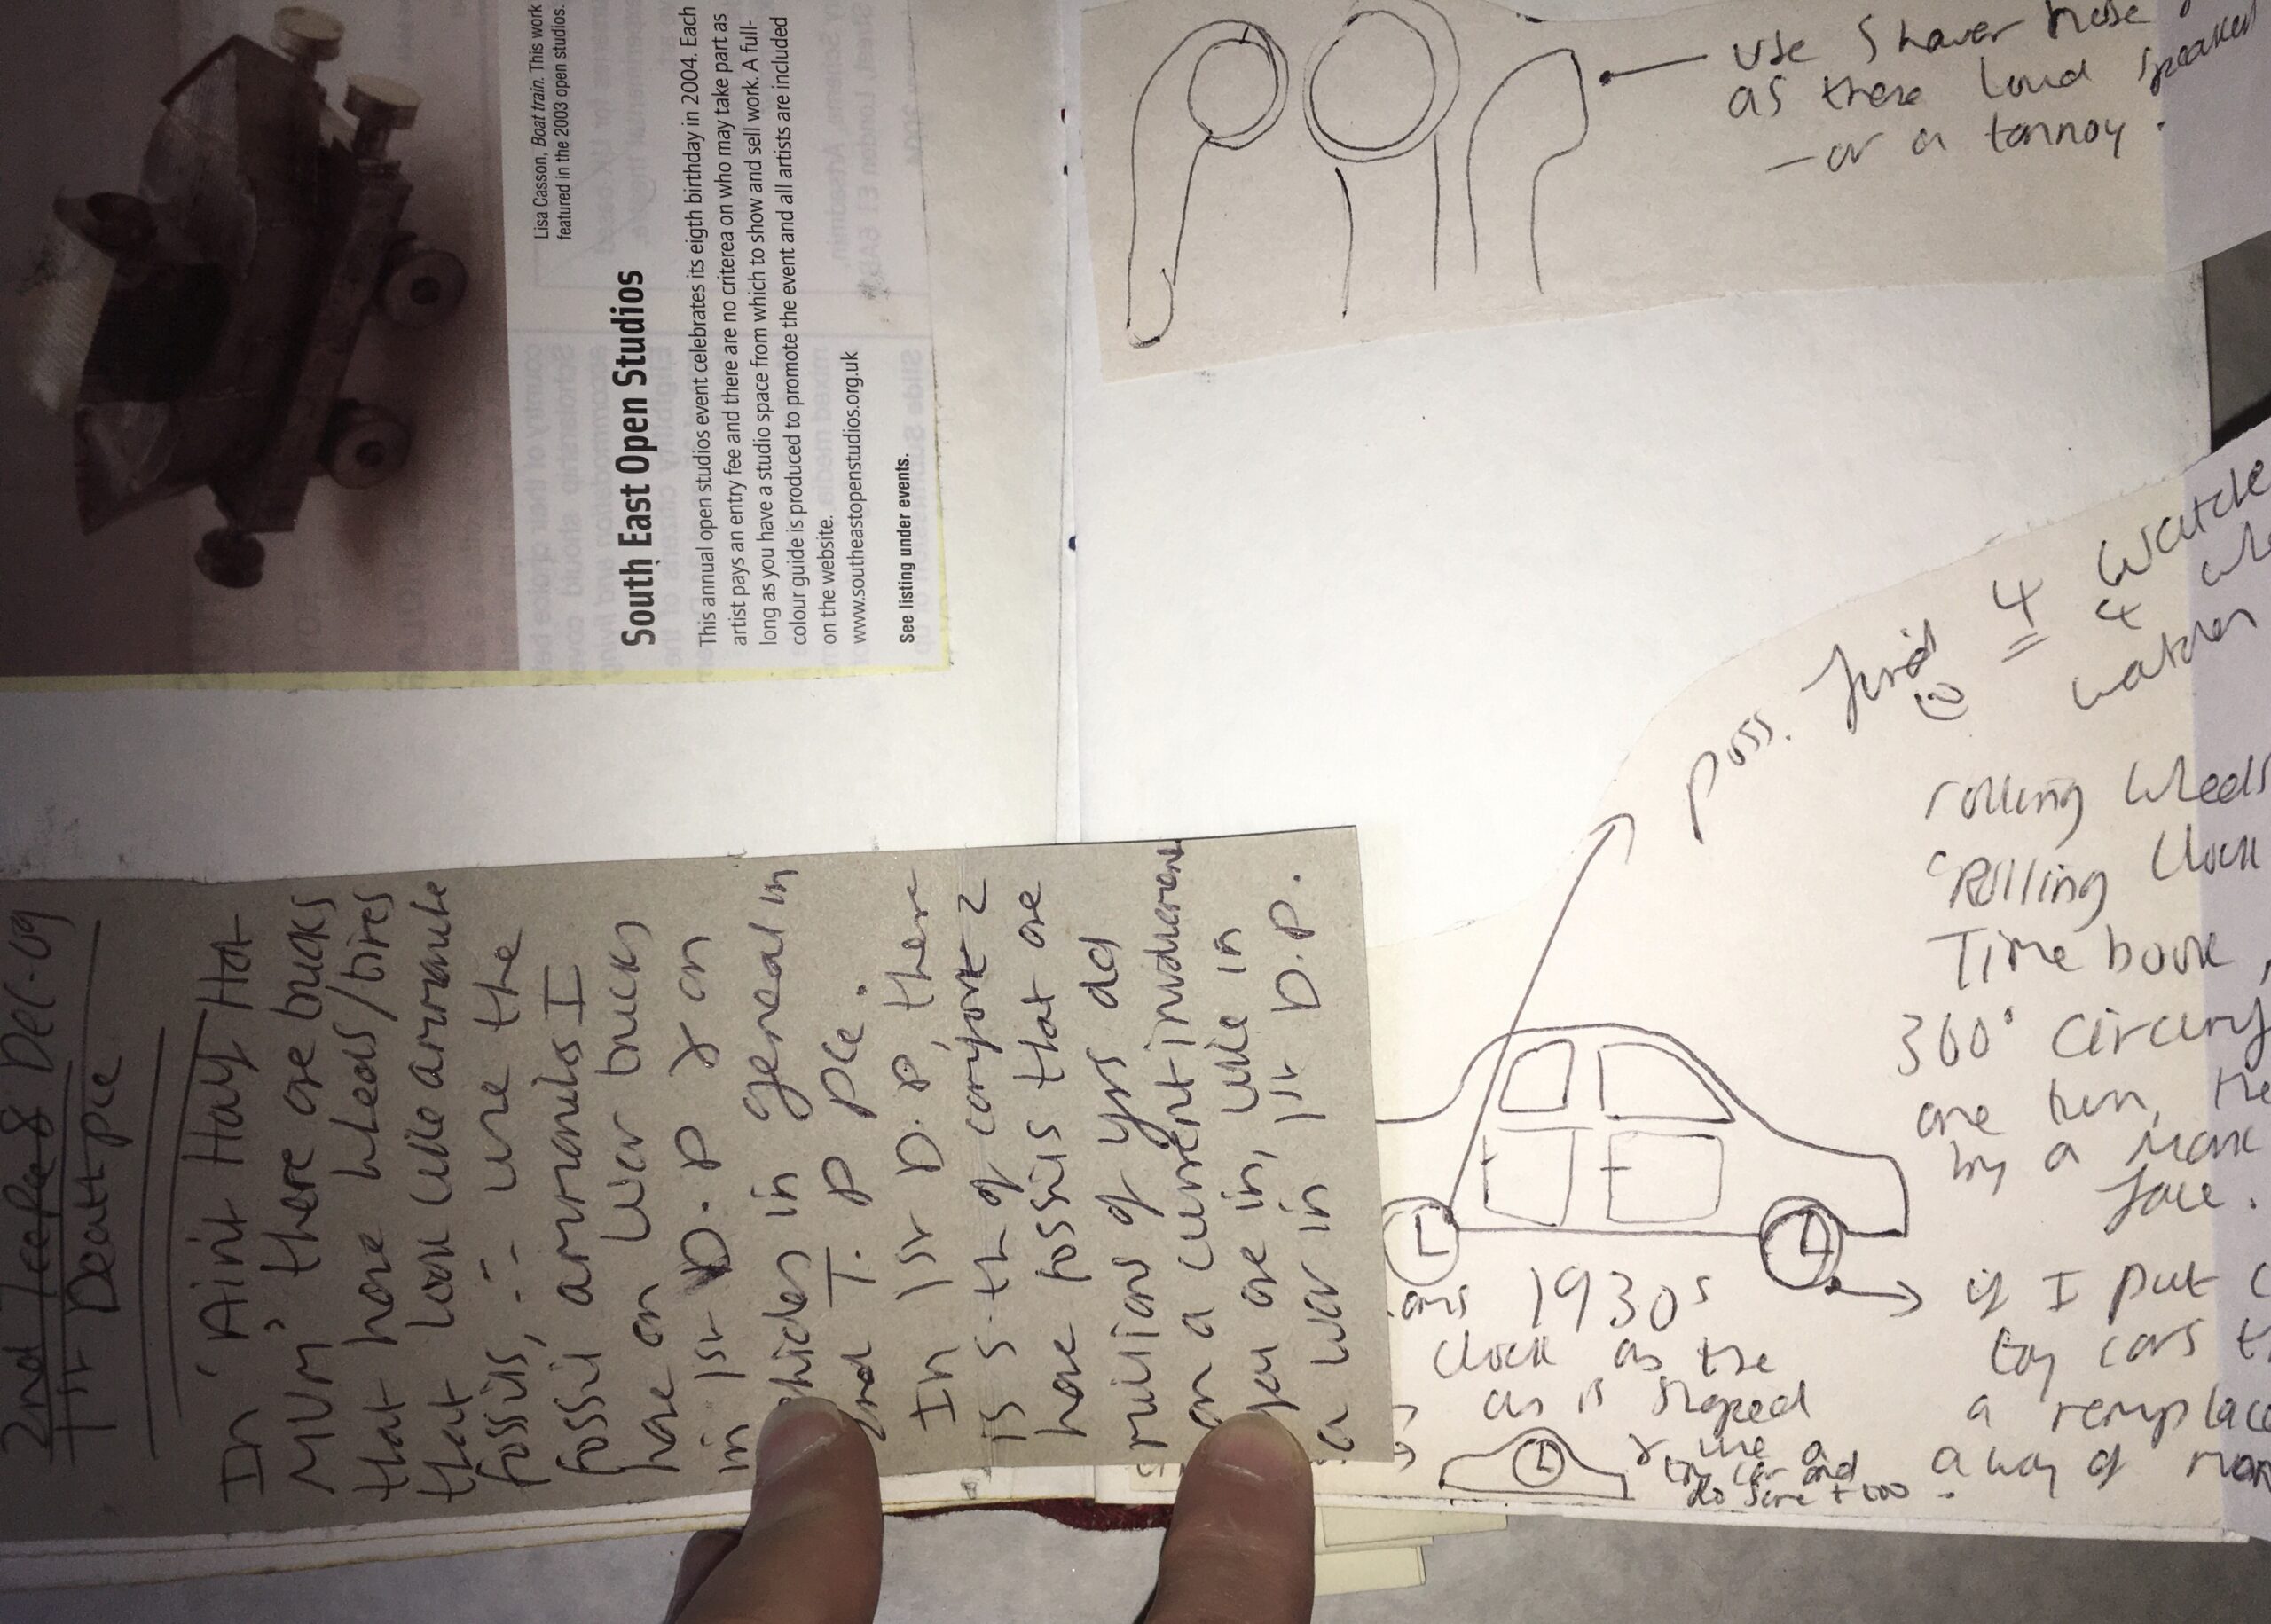 Lisa Casson, Boat train. This work
featured in the 2003 open studios.
South East Open Studios
This annual open studios event celebrates its eigth birthday in 2004. Each
artist pays an entry fee and there are no criterea on who may take part as
long as you have a studio space from which to show and sell work. A full-
colour guide is produced to promote the event and all artists are included
on the website.
www.southeastopenstudios.org.uk
See listing under events.
2nd 8 Dec. 09
1st Death pce
In 'Aint Half Hot
MUM' there are trucks
that have wheels/tires
that look like ammonite
fossils, ∴ use the
fossil ammonites I
have on war trucks
in 1st D.P & on
vehicles in general in
2nd T. P pce.
In 1st D.P, there
is s.th of comfort 2
have fossils that are
millions of yrs old
on a current
you are in, like in
a war in 1st D.P.
use shower hose
as these loud speaker
– or a tannoy.
poss. find 4 watche
4
watches
rolling wheels
'Rolling Clock
Time book,
360°
one turn, the
by a mark
face.
1930s
clock as the
as is shaped
& use a
toy car and
do same too
if I put c
toy cars
a
a way of